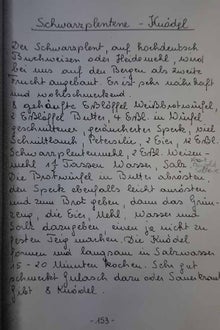 Schwarzplentene - Knödel
Der Schwarzplent, auf hochdeutsch
Buchweizen oder Heidemehl, wird
bei uns auf den Bergen als zweite
Frucht angebaut. Er ist sehr nahrhaft
und wohlschmeckend.
8 gehäufte Eßlöffel Weißbrotwürfel,
2 Eßlöffel Butter, 4 Eßl. in Würfel
geschnittener, geräucherter Speck, viel
Schnittlauch, Petersilie, 2 Eier, 12 Eßl.
Schwarzplentenmehl, 2 Eßl. Weizen-
mehl, 1 Tassen Wasser, Salz.
Die Brotwürfel in Butter abrösten,
den Speck ebenfalls leicht anrösten
und zum Brot geben, dann das Grün-
zeug, die Eier, Mehl, Wasser und
Salz dazugeben, einen ja nicht zu
festen Teig machen. Die Knödel
formen und langsam in Salzwasser
15 - 20 Minuten kochen. Sehr gut
schmeckt Gulasch dazu oder Sauerkraut
Gibt 8 Knödel.
- 153 -